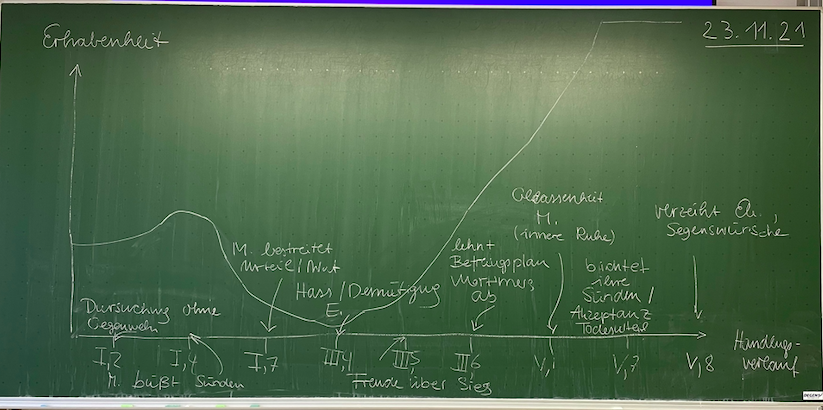 Erhabenheit
23.11.21
Gelassenheit
M.
(innere Ruhe)
verzeiht El.,
Segenswünsche
M. bestreitet
Urteil/Wut
Hass/Demütigung
E.
lehnt
Befreiungsplan
Mortimers
ab
beichtet
ihre
Sünden/
Akzeptanz
Todesurteil
Dursuchung ohne
Gegenwehr
I,2
I,4
I,7
III,4
III,5
III,6
V,1
V,7
V,8
Handlungs-
verlauf
M. büßt Sünden
Freude über Sieg